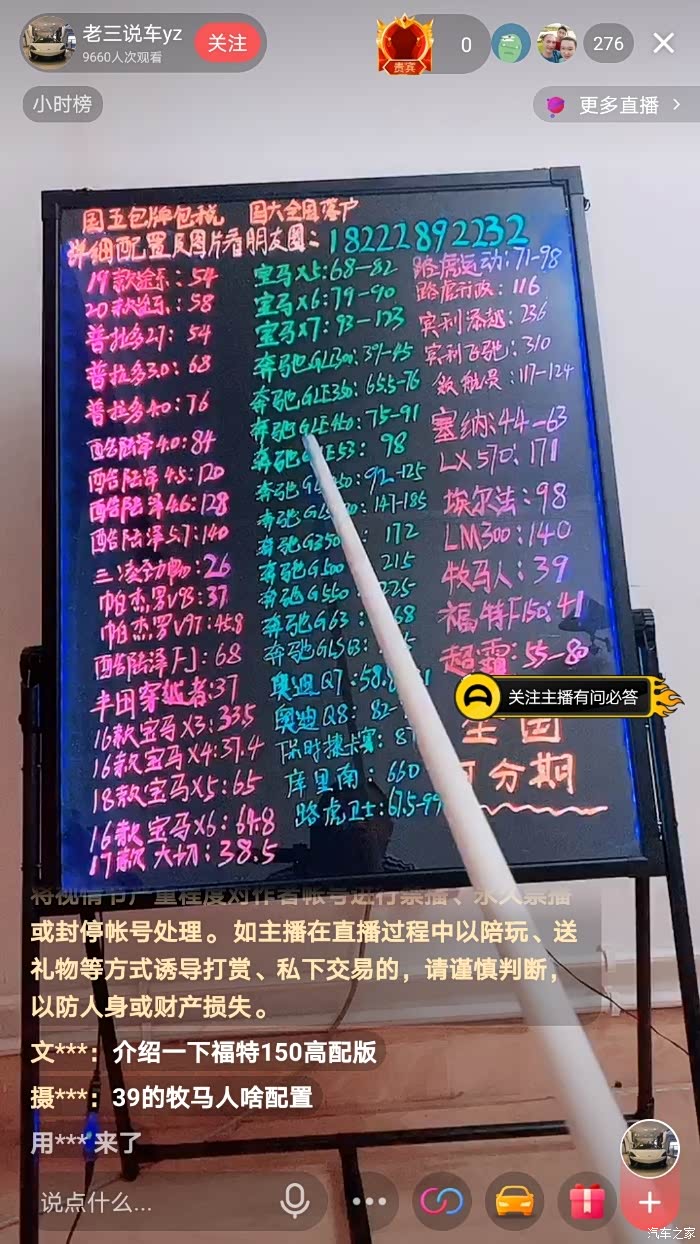 老三说车yz
9660人次观看
关注
贵宾
0
276
小时榜
更多直播
国五包牌包税 国六全国落户
详细配置及图片看朋友圈：18222892232
19款途乐：54
20款途乐：58
普拉多27：54
普拉多30：68
普拉多40：76
酷陆泽40：84
酷陆泽45：120
酷陆泽46：128
酷陆泽57：140
三凌劲畅：26
帕杰罗V93：37
帕杰罗V97：45.8
酷陆泽FJ：68
丰田穿越者：37
16款宝马X3：33.5
16款宝马X4：37.4
18款宝马X5：65
16款宝马X6：64.8
17款大切：38.5
宝马X5：68-82
宝马X6：79-90
宝马X7：93-123
奔驰GLE350：65.5-76
奔驰GLE450：75-91
98
92-125
147-185
172
奔驰G500：215
奔驰G550：225
奔驰G63：
奥迪Q7：58.
奥迪Q8：82-
保时捷卡宴：87
库里南：660
路虎卫士：61.5-99
路虎运动：71-98
路虎行政：116
宾利添越：236
宾利飞驰：310
领航员：117-124
塞纳：44-63
LX570：171
埃尔法：98
LM300：140
牧马人：39
福特F150：41
超霸：55-80
关注主播有问必答
全国
可分期
将视情节严重程度对作者帐号进行禁播、永久禁播
或封停帐号处理。如主播在直播过程中以陪玩、送
礼物等方式诱导打赏、私下交易的，请谨慎判断，
以防人身或财产损失。
文***：介绍一下福特150高配版
摄***：39的牧马人啥配置
用*** 来了
说点什么...
汽车之家